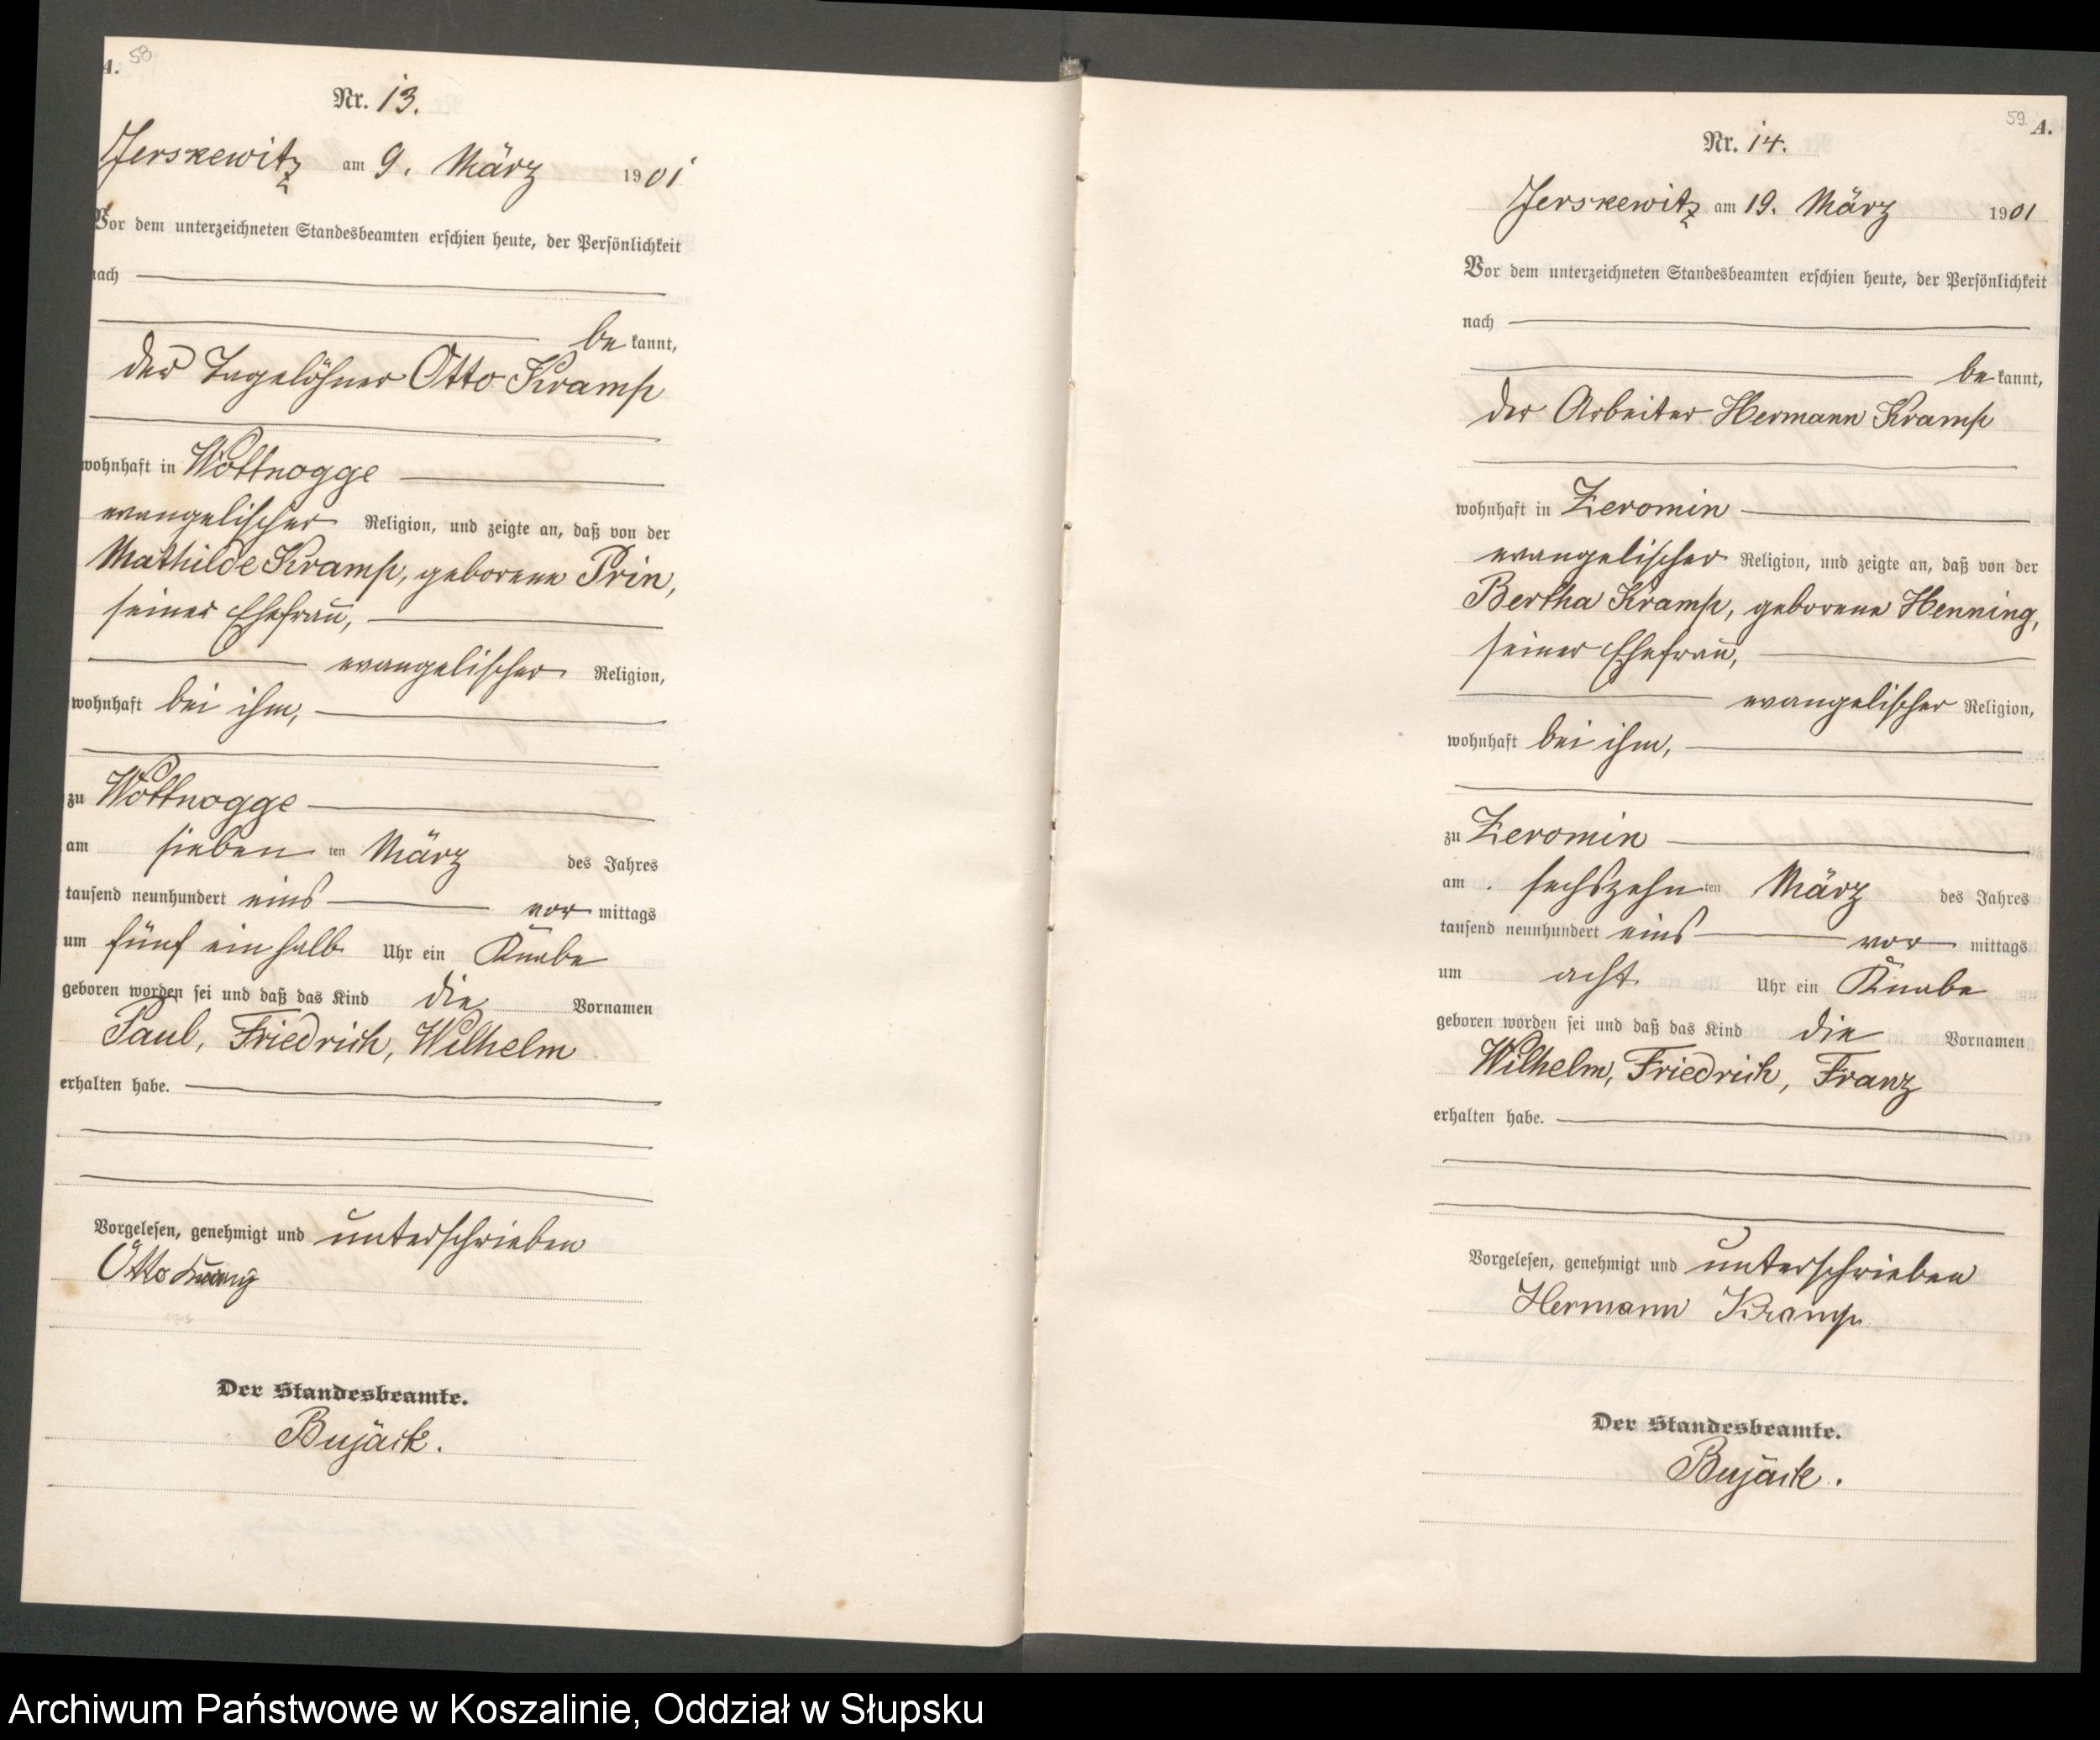 A. 58
Nr. 13.
Jerskewitz am 9. März 1901
Vor dem unterzeichneten Standesbeamten erschien heute, der Persönlichkeit
nach
be kannt,
der Tagelöhner Otto Kramp
wohnhaft in Wottnogge
evangelischer Religion, und zeigte an, daß von der
Mathilde Kramp, geborene Prin,
seiner Ehefrau,
evangelischer Religion,
wohnhaft bei ihm,
zu Wottnogge
am sieben ten März des Jahres
tausend neunhundert eins vor mittags
um fünf ein halb Uhr ein Knabe
geboren worden sei und daß das Kind die Vornamen
Paul, Friedrich, Wilhelm
erhalten habe.
Vorgelesen, genehmigt und unterschrieben
Otto Kramp
Der Standesbeamte.
Bujack.
59. A.
Nr. 14.
Jerskewitz am 19. März 1901
Vor dem unterzeichneten Standesbeamten erschien heute, der Persönlichkeit
nach
be kannt,
der Arbeiter Hermann Kramp
wohnhaft in Zeromin
evangelischer Religion, und zeigte an, daß von der
Bertha Kramp, geborene Henning,
seiner Ehefrau,
evangelischer Religion,
wohnhaft bei ihm,
zu Zeromin
am sechszehn ten März des Jahres
tausend neunhundert eins vor mittags
um acht Uhr ein Knabe
geboren worden sei und daß das Kind die Vornamen
Wilhelm, Friedrich, Franz
erhalten habe.
Vorgelesen, genehmigt und unterschrieben
Hermann Kramp
Der Standesbeamte.
Bujack.
Archiwum Państwowe w Koszalinie, Oddział w Słupsku